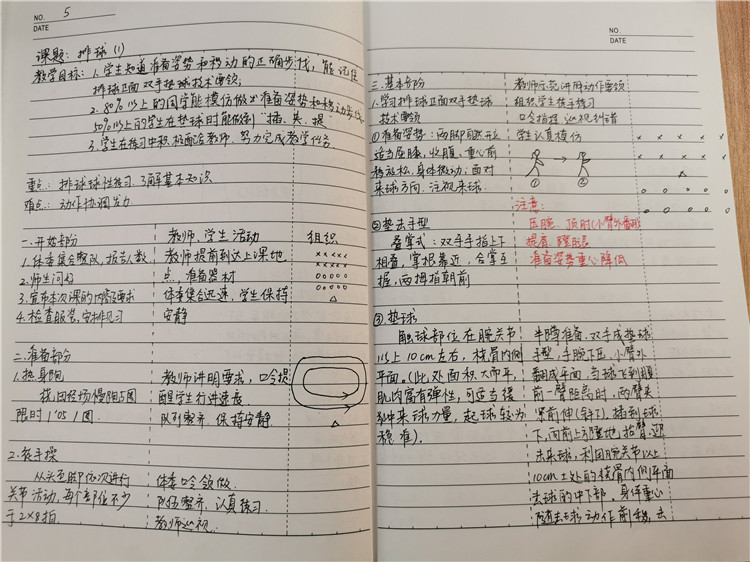 NO. 5
DATE
课题：排球(1)
教学目标：1.学生知道准备姿势和移动的正确步伐，能记住
排球正面双手垫球技术要领；
2.80%以上的同学能模仿做出准备姿势和移动步伐，
50%以上的学生在垫球时能做到"插、夹、提"
3.学生在练习中积极配合教师，努力完成教学任务
重点：排球球性练习，了解基本知识
难点：动作协调发力
一.开始部分 教师、学生活动 组织
1.体委集合整队，报告人数 教师提前到达上课地 ×××××
2.师生问好 点，准备器材 ×××××
3.宣布本次课的内容与要求 体委集合迅速，学生保持 ○○○○○
4.检查服装，安排见习 安静 △
二.准备部分
1.热身跑 教师讲明要求，口令提
找田径场慢跑5圈 醒学生行进速度
限时1'05/圈 队列整齐，保持安静 △
2.徒手操
从头至脚依次进行 体委口令领做
关节活动，每个部位不少 队伍整齐，认真练习
于2×8拍 教师巡视
NO.
DATE
三.基本部分 教师示范讲解动作要领
1.学习排球正面双手垫球 组织学生徒手练习
技术要领 口令指挥，巡视纠错
①准备姿势：两脚开脱形 学生认真模仿 × × × × × ×
适当屈膝，收腹，重心前 × × × × ×
移放松，身体微动；面对 △
来球方向，注视来球 ① ② ○ ○ ○ ○ ○
注意：
②垫击手型 压腕、顶肘(小臂外翻形)
叠掌式：双手手指上下 提肩、蹬腿
相叠，掌根靠近，合掌互 准备姿势重心降低
握，两拇指朝前
③垫球
触球部位在腕关节 半蹲准备，双手成垫球
以上10cm左右，桡骨内侧 手型，手腕下压，小臂外
平面。(此处面积大而平， 翻成平面，当球飞到腹
肌肉富有弹性，可适当缓 前一臂距离时，两臂夹
冲来球力量，起球较为 紧前伸(斜下)，插到球
稳准)。 下，向前上方蹬地，抬臂，迎
击来球，利用腕关节以上
10cm左处的桡骨内侧平面
击球的中下部，身体重心
随击球动作前移，击